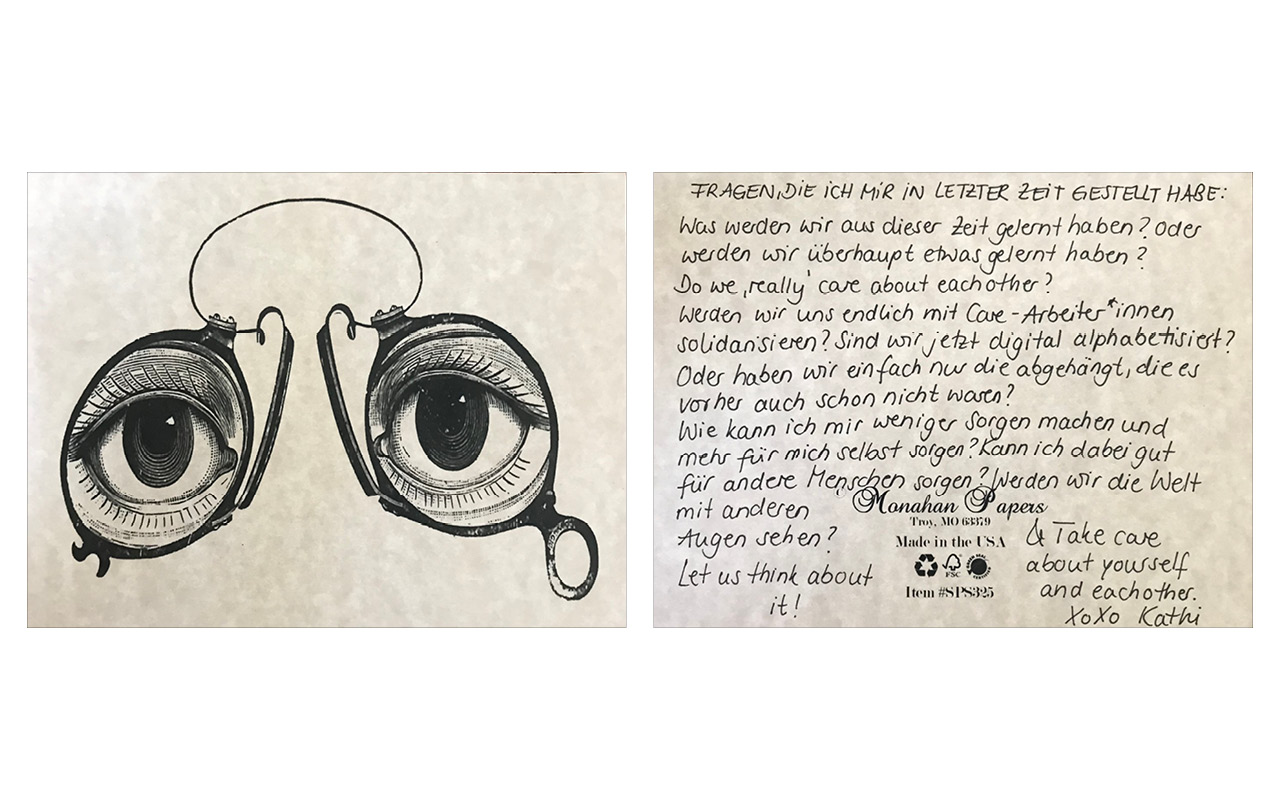 FRAGEN, DIE ICH MIR IN LETZTER ZEIT GESTELLT HABE:
Was werden wir aus dieser Zeit gelernt haben? Oder
werden wir überhaupt etwas gelernt haben?
Do we ‚really' care about eachother?
Werden wir uns endlich mit Care-Arbeiter*innen
solidarisieren? Sind wir jetzt digital alphabetisiert?
Oder haben wir einfach nur die abgehängt, die es
vorher auch schon nicht waren?
Wie kann ich mir weniger Sorgen machen und
mehr für mich selbst sorgen? Kann ich dabei gut
für andere Menschen sorgen? Werden wir die Welt
mit anderen
Augen sehen?
Let us think about
it!
Monahan Papers
Troy, MO 63379
Made in the USA
FSC
Item #SPS325
& Take care
about yourself
and eachother.
XoXo Kathi